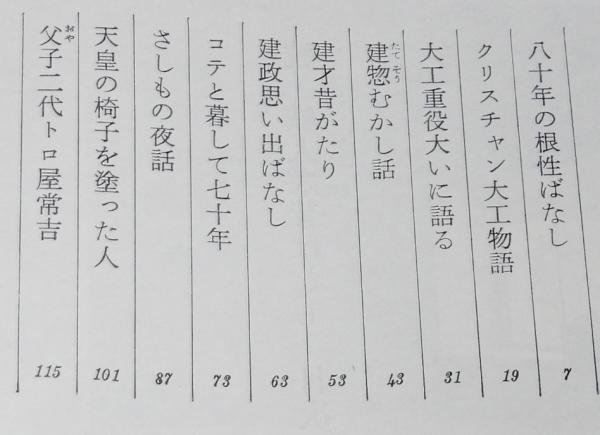 八十年の根性ばなし 7
クリスチャン大工物語 19
大工重役大いに語る 31
建惣むかし話 43
たてそう
建才昔がたり 53
建政思い出ばなし 63
コテと暮して七十年 73
さしもの夜話 87
天皇の椅子を塗った人 101
父子二代トロ屋常吉 115
おや